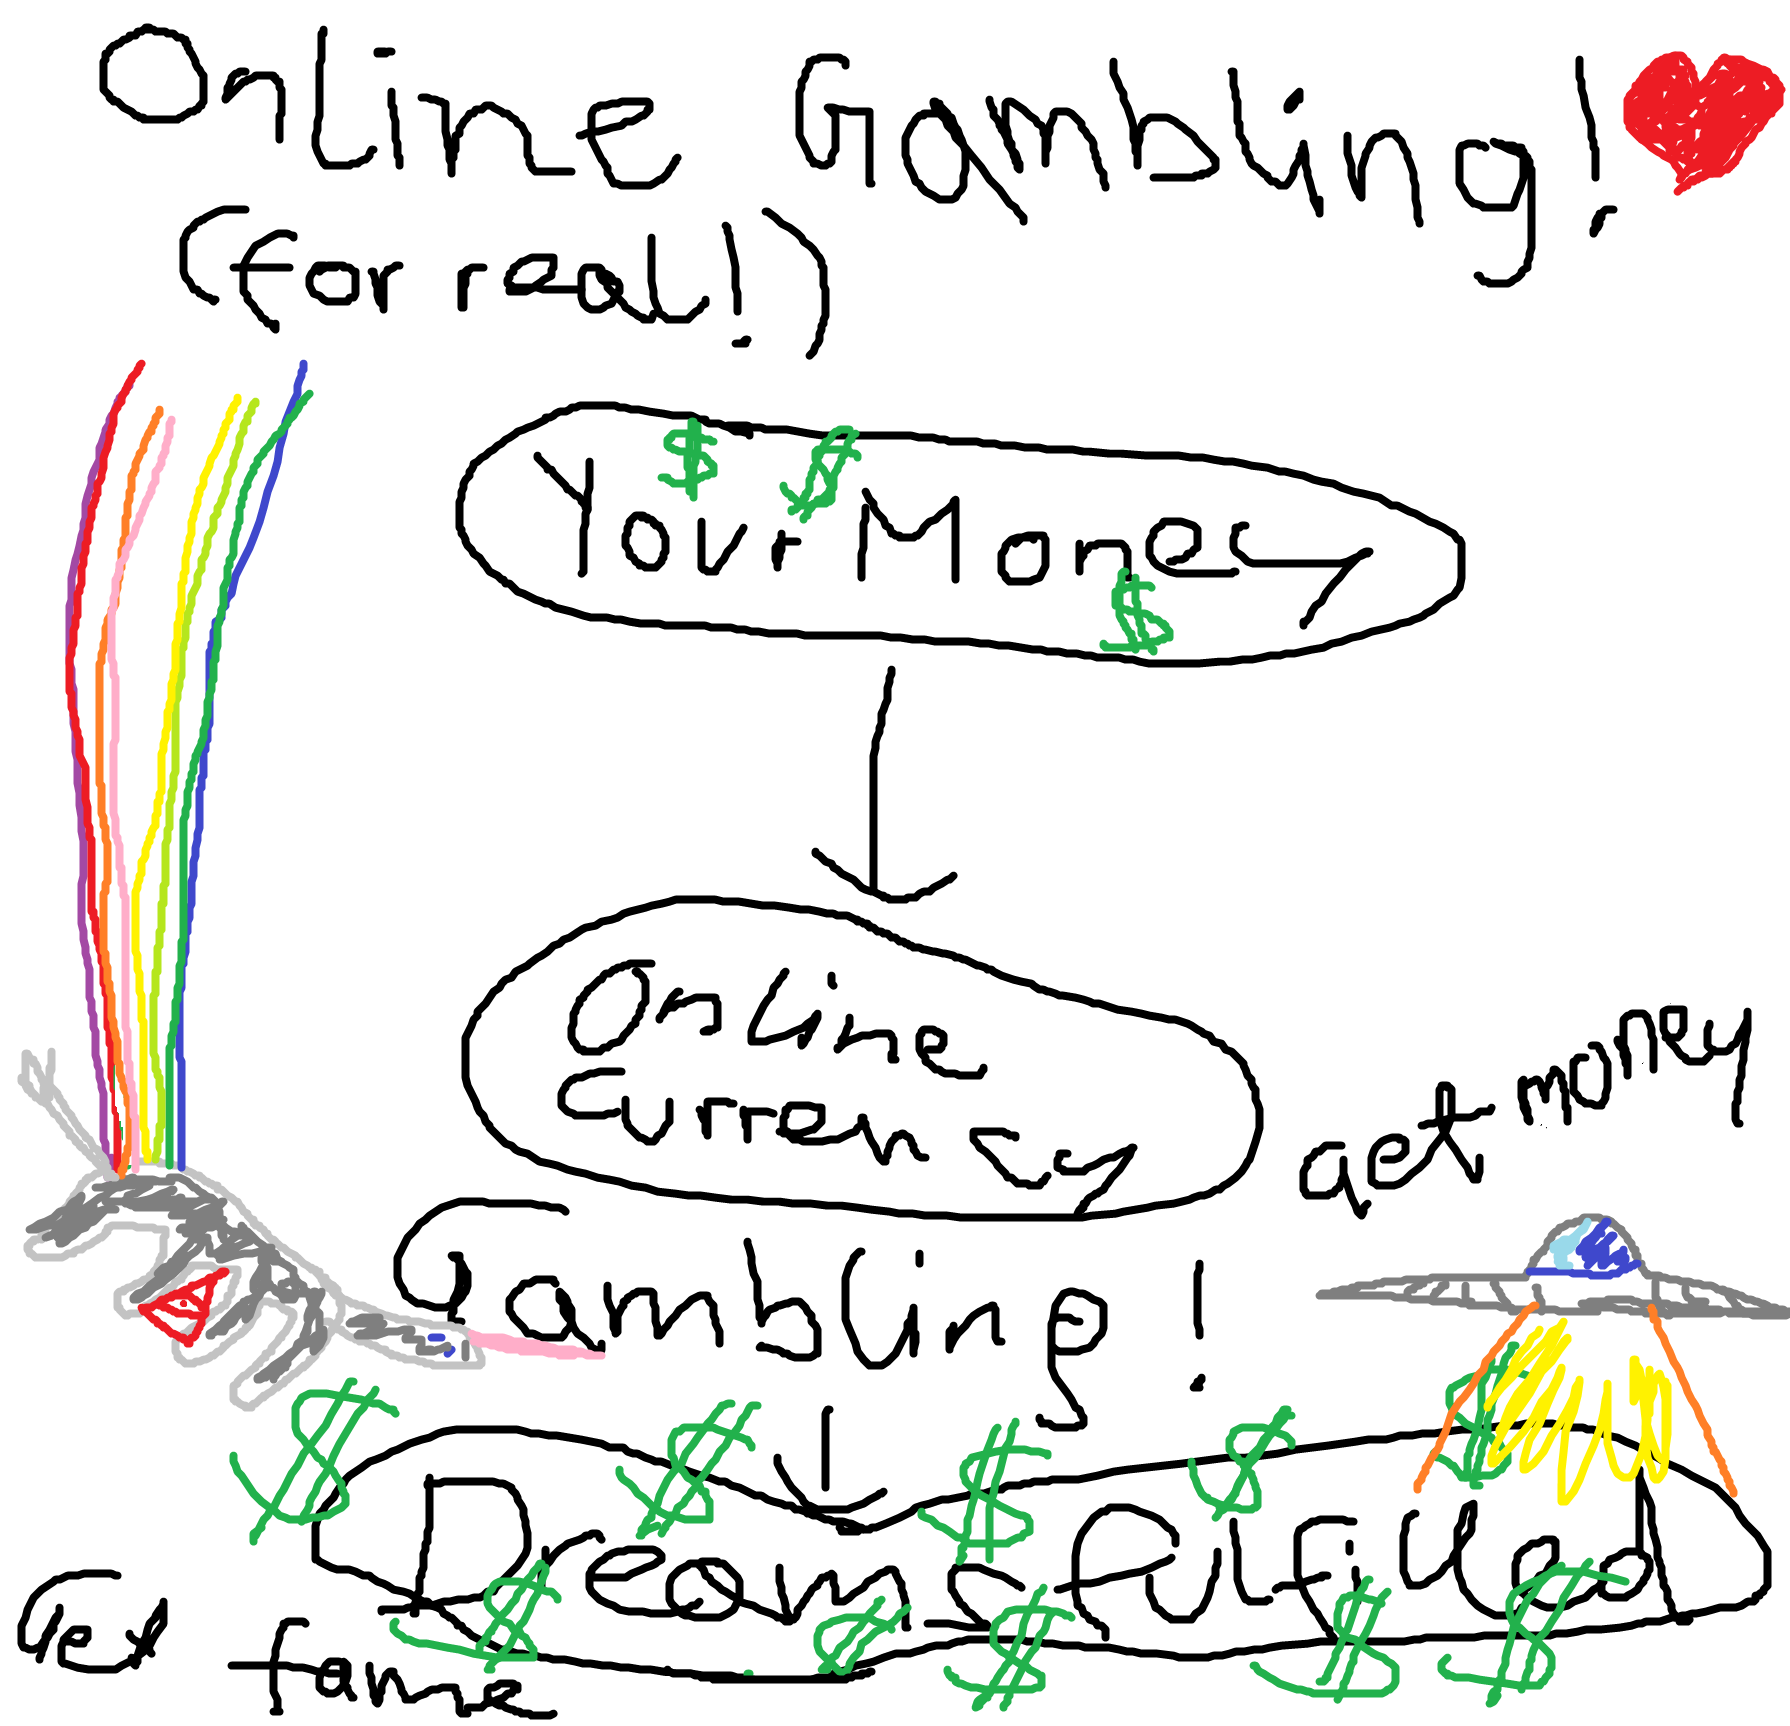 Online Gambling!
(for real!)
$ $
Your Money
$
Online
Currency
get money
Gambling!
$ $ $ $ $
Dreams Fulfilled
$ $ $ $ $
Get fame